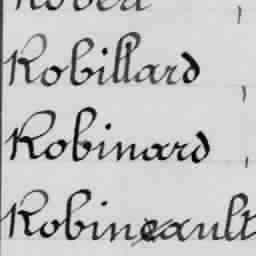 Robillard
Robinard
Robineault